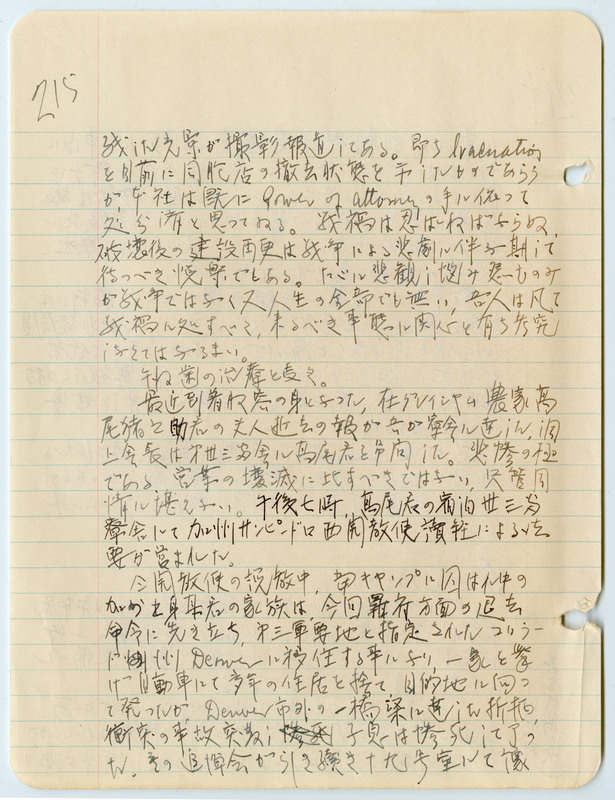 215
残れ光景が撮影報道してある。即ち Evacuation
を目前に同胞店の撤去状態を示したものであらう
が本社は既に Power of attorney の手に依って
処分済と思ってゐる。戦禍は忍ばねばならぬ、
破壊後の建設再更は戦争による悲劇に伴ふ期して
待つべき悦楽でもある。たゞに悲観し悩み恐ものみ
が戦争ではなく又人生の全部でも無い、吾人は凡て
戦禍に処すべく、来るべき事態に関心を有ち考究
なくてはなるまい。
午后歯の治療を受く。
最近到着収容の身となった、在グレイシャム農家高
尾猪之助君の夫人逝去の報が吾が寮舎に達した、
上会長は第世三寮舎に高尾君を弔問した。悲惨の極
である。営業の壊滅に比すべきではない、只管同
情に堪えない。午后七時、高尾君の宿泊世三寮
寮舎にて加州サンピドロ西開教使讀経による法
要が営まれた。
今開教使の説教中、当キャンプに囚はれ中の
加州出身某君の家族は、今回羅府方面の退去
命令に先き立ち、第三軍要地と指定されたコロラー
ド州 Denver に移住する事になり、一家を挙
げ自動車にて多年の住居を捨て、目的地に向っ
て発ったが、Denver 市外の一橋梁に達した折柄、
衝突の事故突発し 子息は惨死して了っ
た、その追悼会が引き續き十九号室にて儀